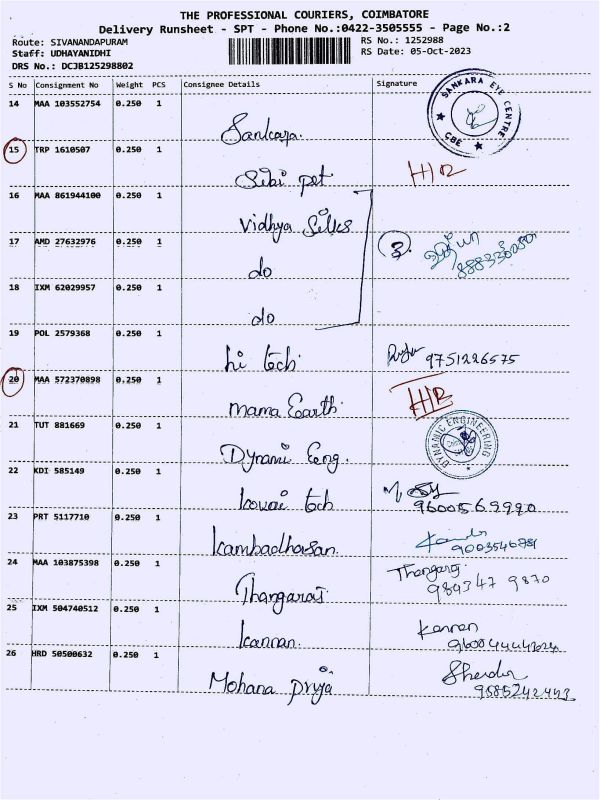 THE PROFESSIONAL COURIERS, COIMBATORE
Delivery Runsheet - SPT - Phone No.:0422-3505555 - Page No.:2
Route: SIVANANDAPURAM RS No.: 1252988
Staff: UDHAYANIDHI RS Date: 05-Oct-2023
DRS No.: DCJB125298802
S No Consignment No Weight PCS Consignee Details Signature
14 MAA 103552754 0.250 1
SANKARA EYE CENTRE
CBE
Sankara.
15 TRP 1610507 0.250 1
Sibi pet
16 MAA 861944100 0.250 1
Vidhya Silks
17 AMD 27632976 0.250 1
do
18 IXM 62029957 0.250 1
do
19 POL 2579368 0.250 1
hi tech 9751226575
20 MAA 572370898 0.250 1
mama Earth
21 TUT 881669 0.250 1
DYNAMIC ENGINEERING
Dynami Eeng.
22 KDI 585149 0.250 1
kovai tech
23 PRT 5117710 0.250 1
kambadhasan.
24 MAA 103875398 0.250 1
Thangaraj Thangaraj.
984347 9870
25 IXM 504740512 0.250 1
kannan. Kannan
26 HRD 50500632 0.250 1
Mohana priya
9585242443